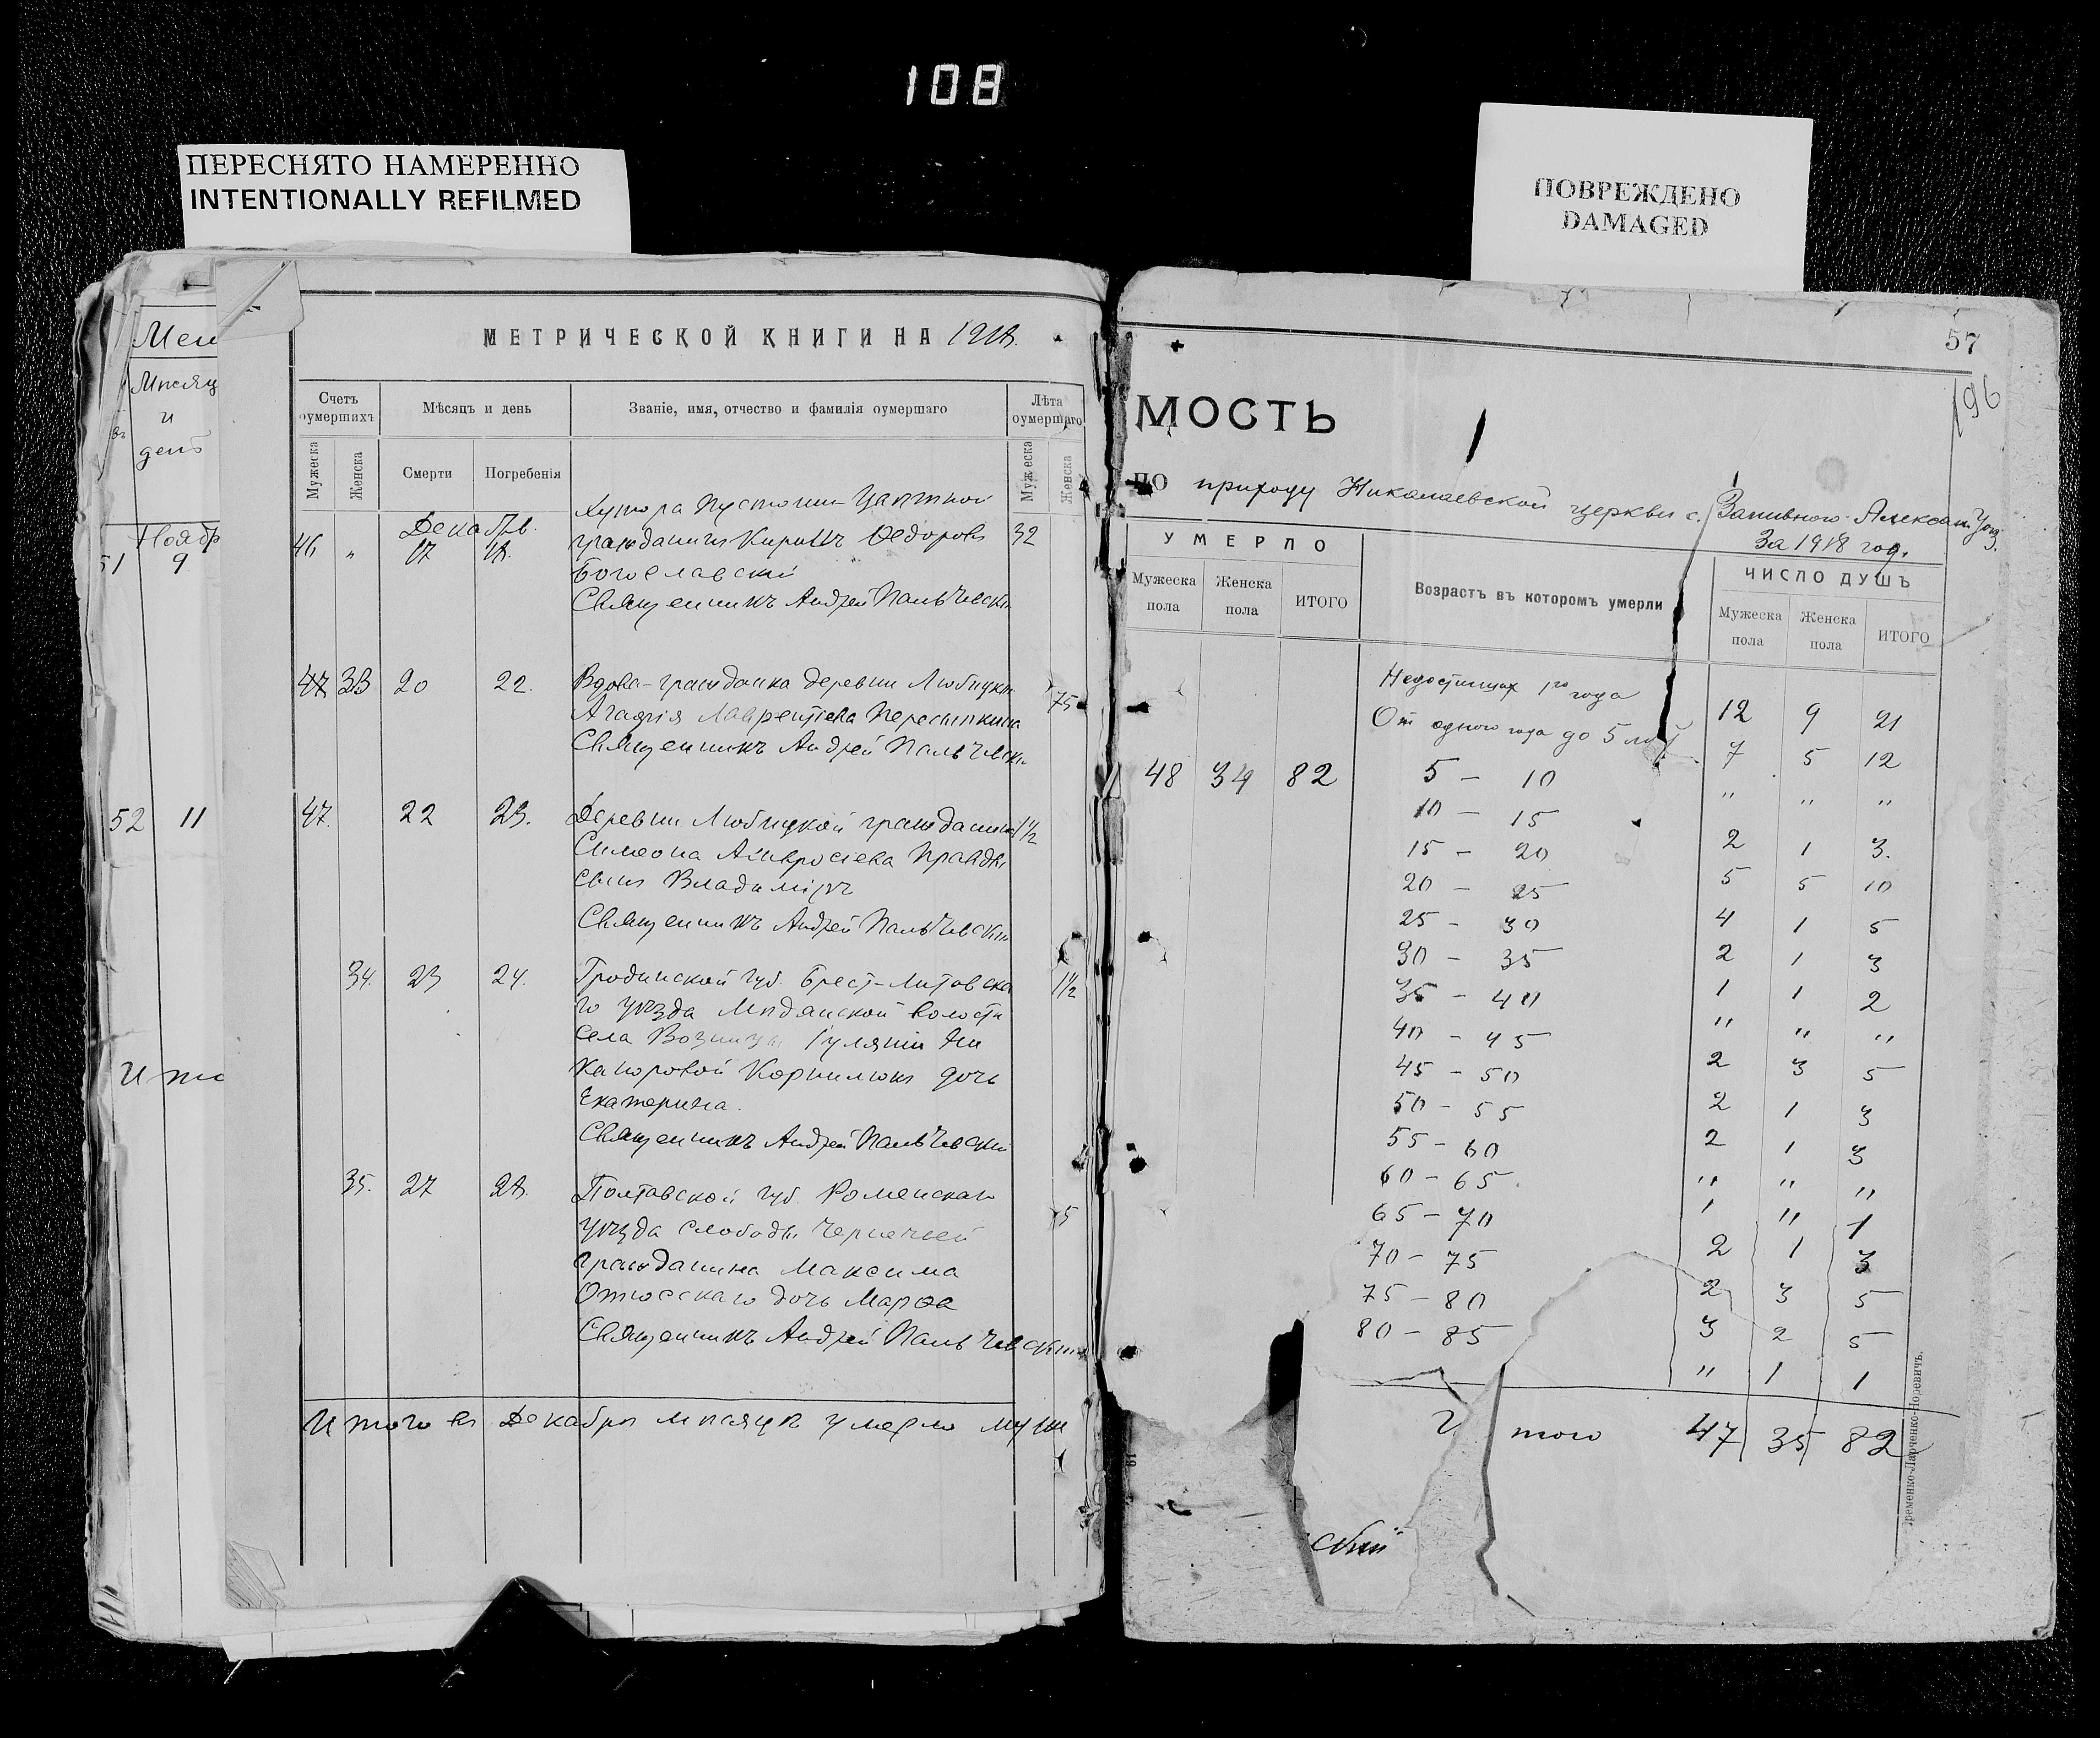 108
ПЕРЕСНЯТО НАМЕРЕННО
INTENTIONALLY REFILMED
ПОВРЕЖДЕНО
DAMAGED
Мѣсяц
и
день
Ноябр
51 9
52 11
МЕТРИЧЕСКОЙ КНИГИ НА 1918.
Счетъ оумершихъ
Мѣсяцъ и день
Званіе, имя, отчество и фамилія оумершаго
Лѣта оумершаго
Мужеска
Женска
Смерти
Погребенія
Мужеска
Женска
Декабрь.
Хутора
46 " 17 18. гражданинъ Кириллъ Ѳедоровъ 32
Богославскій
Священникъ Андрей Пальчевскій
47 33 20 22. Вдова-гражданка деревни Любицкой 75
Агафія Лаврентіева Пересыпкина
Священникъ Андрей Пальчевскій
47. 22 23. Деревни Любицкой гражданина 1½
Симеона Амвросіева Правды
сынъ Владиміръ
Священникъ Андрей Пальчевскій
34. 23 24. Гродненской губ. Брест-Литовска 1½
го уѣзда волости
села
Корнилюкъ дочь
Екатерина.
Священникъ Андрей Пальчевскій
35. 27 28. Полтавской губ. Роменскаго
уѣзда слободы Чернечьей 5
гражданина Максима
дочь Марѳа
Священникъ Андрей Пальчевскій
Итого въ Декабрѣ мѣсяцѣ умерло муж
57
196
МОСТЬ
ПО приходу Николаевской церкви с. Александ. Уѣз.
За 1918 год.
УМЕРЛО
Мужеска пола
Женска пола
ИТОГО
Возрастъ въ которомъ умерли
ЧИСЛО ДУШЪ
Мужеска пола
Женска пола
ИТОГО
48 34 82
Недостигших 1го года 12 9 21
От одного года до 5 лет 7 5 12
5 - 10 " " "
10 - 15 2 1 3.
15 - 20 5 5 10
20 - 25 4 1 5
25 - 30 2 1 3
30 - 35 1 1 2
35 - 40 " " "
40 - 45 2 3 5
45 - 50 2 1 3
50 - 55 2 1 3
55 - 60 " " "
60 - 65 1 " 1
65 - 70 2 1 3
70 - 75 2 3 5
75 - 80 3 2 5
80 - 85 " 1 1
того 47 35 82
скій